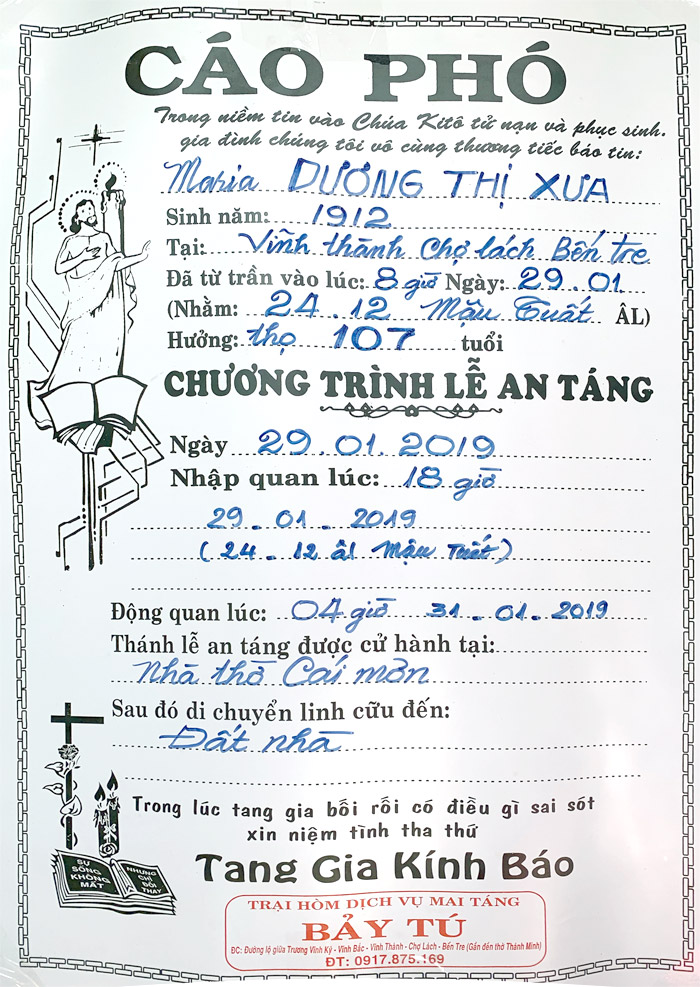 CÁO PHÓ
Trong niềm tin vào Chúa Kitô tử nạn và phục sinh.
gia đình chúng tôi vô cùng thương tiếc báo tin:
Maria DƯƠNG THỊ XƯA
Sinh năm: 1912
Tại: Vĩnh thành Chợ lách Bến tre
Đã từ trần vào lúc: 8 giờ Ngày: 29.01
(Nhằm: 24.12 Mậu Tuất ÂL)
Hưởng: thọ 107 tuổi
CHƯƠNG TRÌNH LỄ AN TÁNG
Ngày 29.01.2019
Nhập quan lúc: 18 giờ
29-01-2019
(24-12 âl Mậu Tuất)
Động quan lúc: 04 giờ 31-01-2019
Thánh lễ an táng được cử hành tại:
Nhà thờ Cái mơn
Sau đó di chuyển linh cữu đến:
Đất nhà
Trong lúc tang gia bối rối có điều gì sai sót
xin niệm tình tha thứ
Tang Gia Kính Báo
SỰ SỐNG KHÔNG MẤT
NHƯNG CHỈ ĐỔI THAY
TRẠI HÒM DỊCH VỤ MAI TÁNG
BẢY TÚ
ĐC: Đường lộ giữa Trương Vĩnh Ký - Vĩnh Bắc - Vĩnh Thành - Chợ Lách - Bến Tre (Gần đền thờ Thánh Minh)
ĐT: 0917.875.169